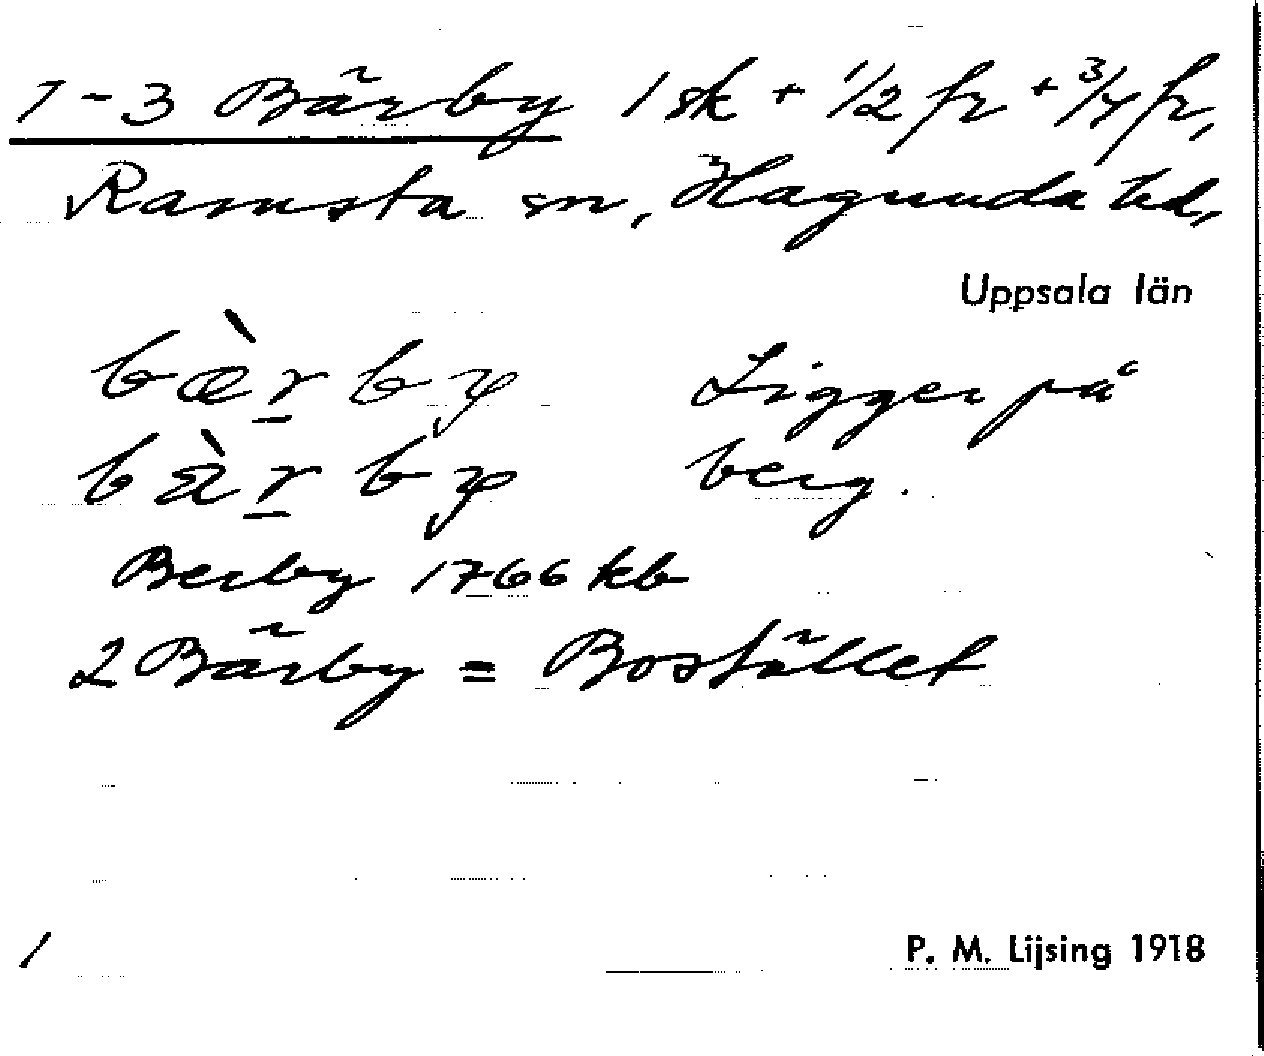 1-3 Bärby 1 sk + 1/2 fr + 3/4 fr,
Ramsta sn, Hagunda hd,
Uppsala län
bæ̀r̲by Ligger på
bàr̲by berg.
Berby 1766 kb
2 Bärby = Bostället
1 P. M. Lijsing 1918